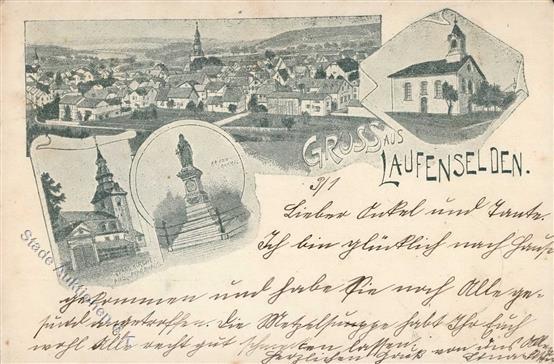 GRUSS AUS
LAUFENSELDEN.
3/1
Lieber Onkel und Tante.
Ich bin glücklich nach Hause
gekommen und habe Sie noch Alle ge-
sund angetroffen. Die Metzelsuppe habt Ihr Euch
wohl Alle recht gut schmecken lassen.
Herzlichen Gruß von uns Allen